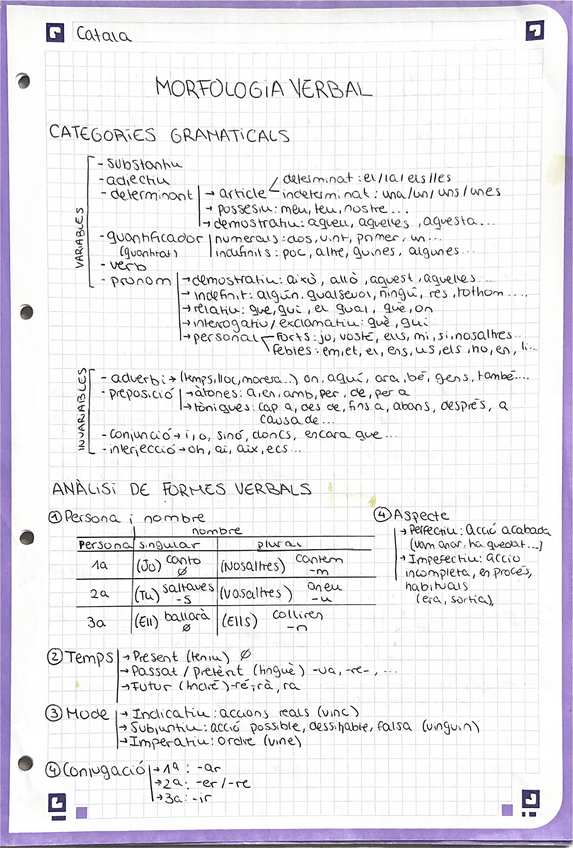 Català
MORFOLOGIA VERBAL
CATEGORIES GRAMATICALS
VARIABLES
- substantiu
- adjectiu
- determinant → article determinat: el/la/els/les
indeterminat: una/un/uns/unes
→ possesiu: meu, teu, nostre...
→ demostratiu: aqueu, aquelles, aquesta...
- quantificador numerals: dos, vint, primer, un...
(quantitat) indifinits: poc, altre, quines, algunes...
- verb
- pronom → demostratiu: això, allò, aquest, aquelles...
→ indefinit: algún, qualsevol, ningú, res, tothom....
→ relatiu: que, qui, el qual, què, on
→ interrogatiu/exclamatiu: què, qui
→ personal forts: jo, vostè, ells, mi, si, nosaltres...
febles: em, et, el, ens, us, els, ho, en, li...
INVARIABLES
- adverbi → (temps, lloc, manera...) on, aquí, ara, bé, gens, també...
- preposició → àtones: a, en, amb, per, de, per a
→ tòniques: cap a, des de, fins a, abans, després, a
causa de...
- conjunció → i, o, sinó, doncs, encara que...
- interjecció → oh, ai, aix, ecs...
ANÀLISI DE FORMES VERBALS
① Persona i nombre
nombre
Persona singular plural
1a (Jo) canto ø (Nosaltres) cantem -m
2a (Tu) saltaves -s (Vosaltres) aneu -u
3a (Ell) ballarà ø (Ells) colliren -n
② Temps → Present (teniu) ø
→ Passat / pretèrit (tingué) -va, -re-, ...
→ Futur (tindré) -ré, rà, ra
③ Mode → Indicatiu: accions reals (vinc)
→ Subjuntiu: acció possible, dessitjable, falsa (vinguin)
→ Imperatiu: Ordre (vine)
④ Conjugació → 1ª: -ar
→ 2a: -er/-re
→ 3a: -ir
④ Aspecte
→ Perfectiu: Acció acabada
(vam anar, ha quedat...)
→ Imperfectiu: Acció
incompleta, en procés,
habituals
(era, sortia),